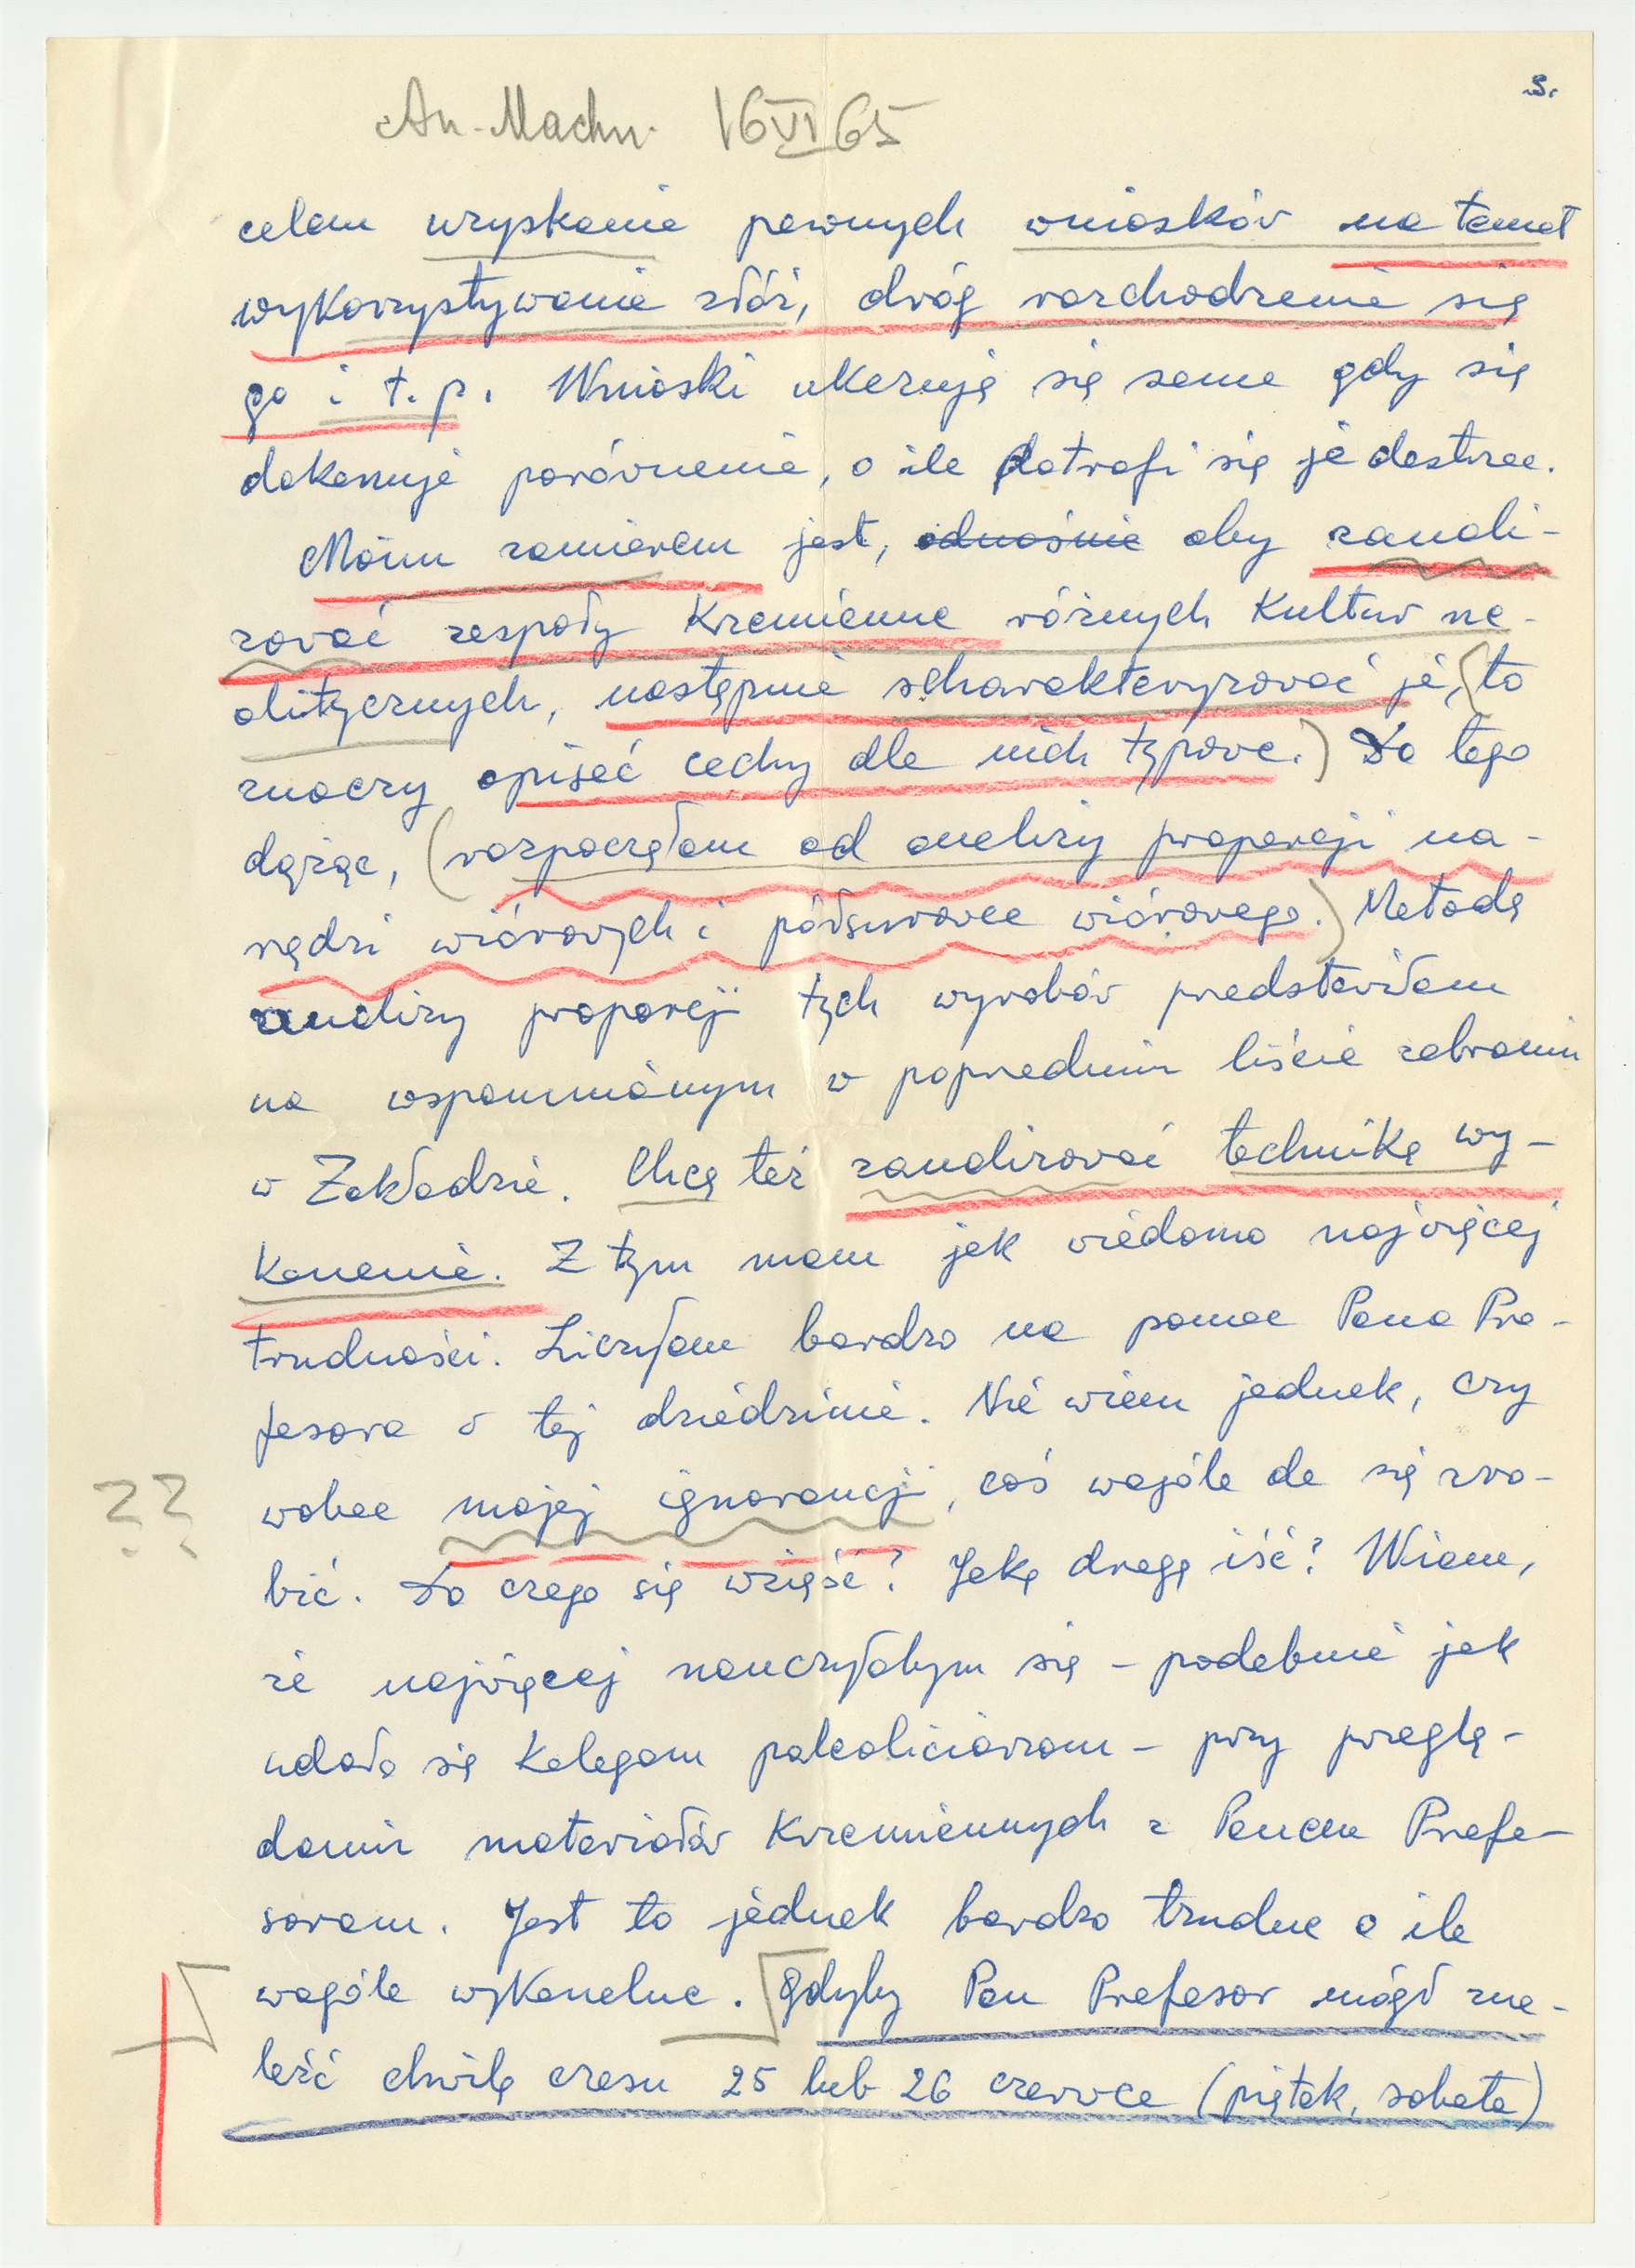 3.
An. Machn. 16 VI 65
celem uzyskania pewnych wniosków na temat
wykorzystywania złóż, dróg rozchodzenia się
go i t. p. Wnioski ukazują się same gdy się
dokonuje porównania, o ile potrafi się je dostrzec.
Moim zamiarem jest, ~~odnośnie~~ aby zanali-
zować zespoły krzemienne różnych kultur ne-
olitycznych, następnie scharakteryzować je, (to
znaczy opisać cechy dla nich typowe.) Do tego
dążąc, (rozpoczęłam od analizy proporcji na-
rzędzi wiórowych i półsurowca wiórowego.) Metodę
analizy proporcji tych wyrobów przedstawiłam
na wspomnianym w poprzednim liście zebraniu
w Zakładzie. Chcę też zanalizować technikę wy-
konania. Z tym mam jak wiadomo najwięcej
trudności. Liczyłam bardzo na pomoc Pana Pro-
fesora w tej dziedzinie. Nie wiem jednak, czy
?? wobec mojej ignorancji, coś wogóle da się zro-
bić. Do czego się wziąść? Jaką drogą iść? Wiem,
że najwięcej nauczyłabym się – podobnie jak
udało się Kolegom paleoliciarzom – przy przeglą-
daniu materiałów krzemiennych z Panem Profe-
sorem. Jest to jednak bardzo trudne o ile
wogóle wykonalne. Gdyby Pan Profesor mógł zna-
leźć chwilę czasu 25 lub 26 czerwca (piątek, sobota)